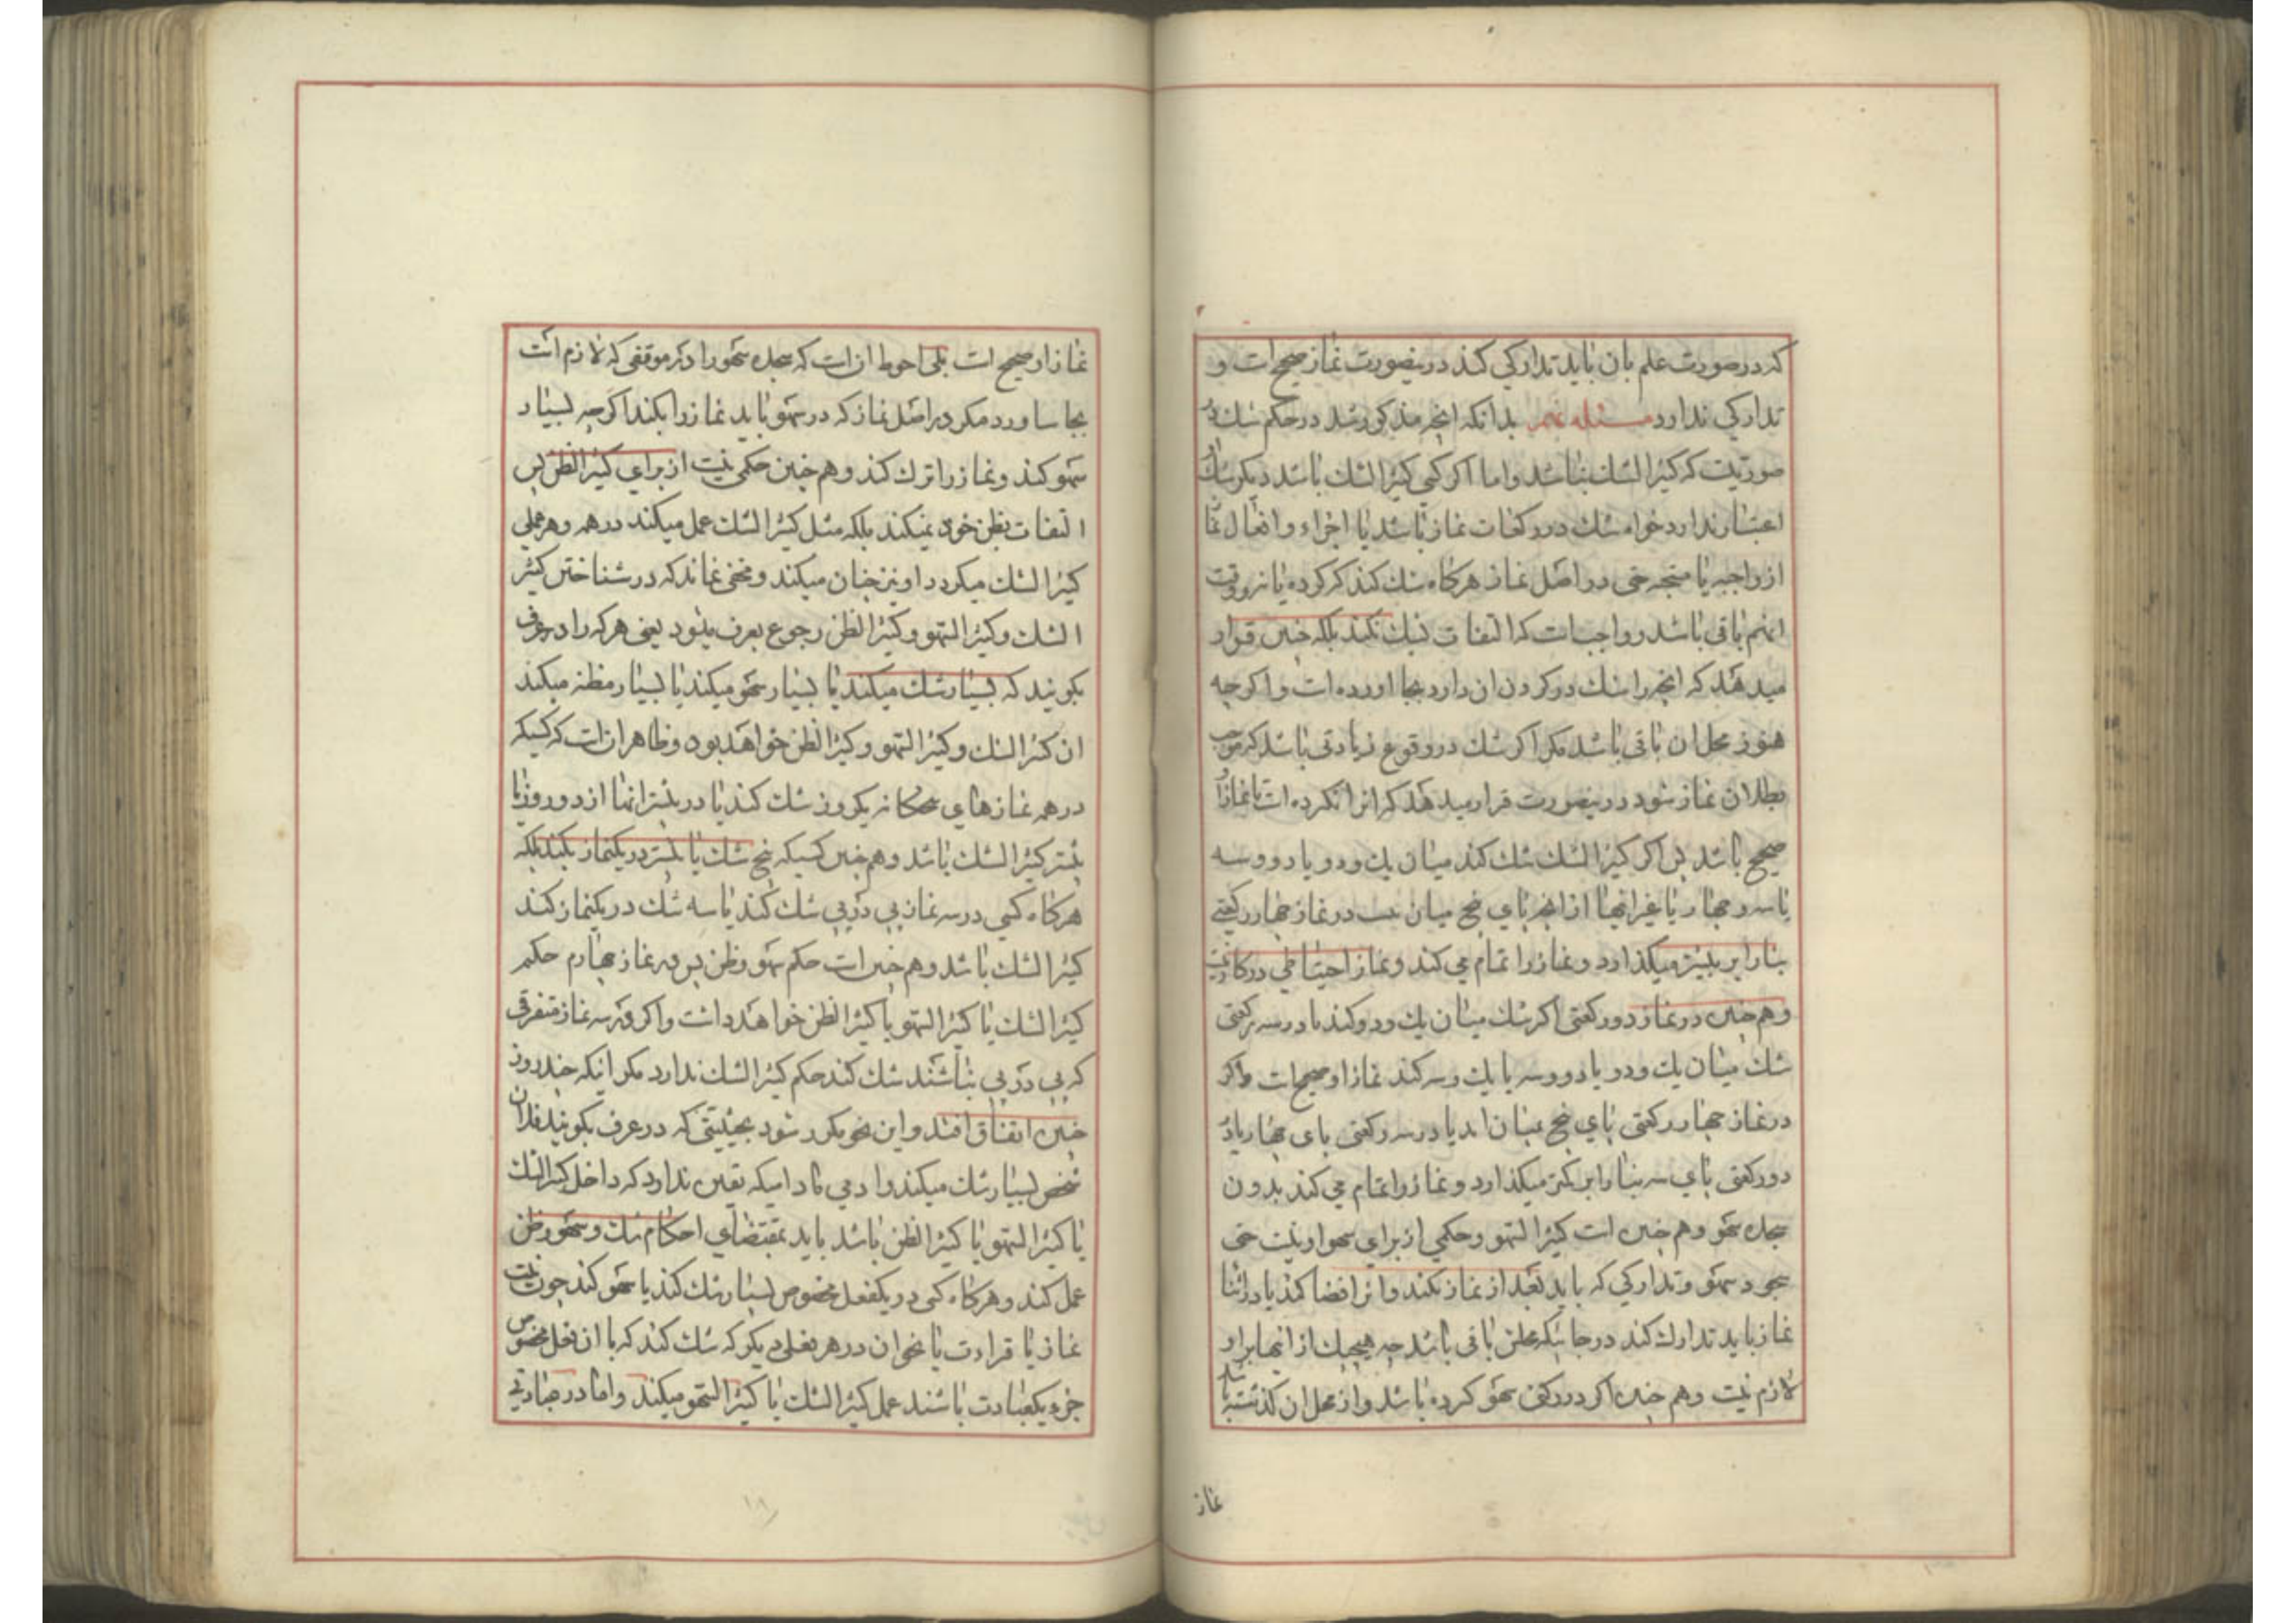 که در صورت علم بان باید تدارکی کند درینصورت نماز صحیح است و
تدارکی ندارد مسئله نهم بدانکه انچه مذکور شد در حکم شک در
صورتیست که کثیر الشک نباشد و اما اکر کسی کثیر الشک باشد دیکر شک او
اعتبار ندارد خواه شک در رکعات نماز باشد یا اجزاء و افعال نماز
از واجبه یا مستحبه حتی در اصل نماز هرکاه شک کند که کرده یا نه و وقت
انهم باقی باشد و واجبست که التفات بشک نکند بلکه چنین قرار
میدهد که انچه را شک در کردن ان دارد بجا اورده است و اکرچه
هنوز محل ان باقی باشد مکر اکر شک در وقوع زیادتی باشد که موجب
بطلان نماز شود درینصورت قرار میدهد که انرا نکرده است تا نماز او
صحیح باشد پس اکر کثیر الشک شک کند میان یک و دو یا دو و سه
یا سه و چهار یا غیر انها از انچه پای پنج میان نیست در نماز چهار رکعتی
بنا را بر بیشتر میکذارد و نماز را تمام می کند و نماز احتیاطی در کار نیست
و هم چنین در نماز دو رکعتی اکر شک میان یک و دو کند یا در سه رکعتی
شک میان یک و دو یا دو و سه یا یک و سه کند نماز او صحیح است و اکر
در نماز چهار رکعتی پای پنج بمیان اید یا در سه رکعتی پای چهار یا در
دو رکعتی پای سه بنا را بر کمتر میکذارد و نماز را تمام می کند بدون
سجده سهو و هم چنین است کثیر السهو و حکمی از برای سهو او نیست حتی
سجود سهو و تدارکی که باید بعد از نماز بکند و انرا قضا کند یا در اثنا
نماز باید تدارک کند در جائیکه محلش باقی باشد چه هیچیک از انها بر او
لازم نیست و هم چنین اکر در رکنی سهو کرده باشد و از محل ان کذشته باشد
نماز
نماز او صحیح است بلی احوط ان است که سجده سهو را در هر موقعی که لازم است
بجا بیاورد مکر در اصل نماز که در سهو باید نماز را بکند اکرچه بسیار
سهو کند و نماز را ترک کند و هم چنین حکمی نیست از برای کثیر الظن پس
التفات بظن خود نمیکند بلکه مثل کثیر الشک عمل میکند در همه و هر عملی
کثیر الشک میکرد او نیز چنان میکند و مخفی نماند که در شناختن کثیر
الشک و کثیر السهو و کثیر الظن رجوع بعرف میشود یعنی هر که را در عرف
بکویند که بسیار شک میکند یا بسیار سهو میکند یا بسیار مظنه میکند
ان کثیر الشک و کثیر السهو و کثیر الظن خواهد بود و ظاهر ان است که کسیکه
در همه نمازهای پنجکانه یکروز شک کند یا در بیشتر انها از دو روز یا
بیشتر کثیر الشک باشد و هم چنین کسیکه پنج شک یا بیشتر در یکنماز بکند بلکه
هرکاه کسی در سه نماز پی در پی شک کند یا سه شک در یکنماز کند
کثیر الشک باشد و هم چنین است حکم سهو و ظن پس در نماز چهارم حکم
کثیر الشک یا کثیر السهو یا کثیر الظن خواهد داشت و اکر در سه نماز متفرقی
که پی در پی نباشند شک کند حکم کثیر الشک ندارد مکر انکه چند روز
چنین اتفاق افتد و این نحو مکرر شود بحیثیتی که در عرف بکویند فلان
شخص بسیار شک میکند و ادمی مادامیکه یقین ندارد که داخل کثیر الشک
یا کثیر السهو یا کثیر الظن باشد باید بمقتضای احکام شک و سهو و ظن
عمل کند و هرکاه کسی در یکفعل مخصوص بسیار شک کند یا سهو کند چون نیت
نماز یا قراءت یا نحو ان در هر فعلی دیکر که شک کند که با ان فعل مخصوص
جزء یکعبادت باشند عمل کثیر الشک یا کثیر السهو میکند و اما در عبادتی